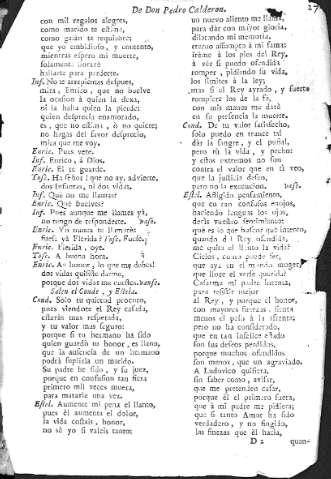 De Don Pedro Calderon.
27
con mil regalos alegres,
como marido te estima,
como galán te requiebre;
que yo embidioso, y contento,
mientras espero mi muerte,
solamente lloraré
hallarte para perderte.
Inf. No te arrepientas despues,
mira, Enrico, que no buelve
la ocasion à quien la dexa,
ni la halla quien la pierde:
quien desprecia enamorado,
es, que no estima, ò no quiere;
no hagas del favor desprecio,
mira que me voy.
Enric. Pues vete.
Inf. Enrico, à Dios.
Enric. El te guarde.
Tosc. Ha señor! que no ay, advierte,
dos Infantas, ni dos vidas.
Inf. Qué no me llamas?
Enric. Qué buelves?
Inf. Pues aunque me llames yà,
no tengo de responderte. vase.
Enric. Yo nunca te llamaré:
fuese yà Flerida? Tosc. Fuese.
Enric. Flerida, oye.
Tosc. A buena hora.
Enric. Ay honor, lo que me debes!
dos vidas quisiste darme,
porque dos vidas me cuestes. vanse.
Salen el Conde, y Estela.
Cond. Solo tu quietud procuro,
pues viendote el Rey casada,
estarás mas respetada,
y tu valor mas seguro:
porque si tu hermano ha sido
quien guardò tu honor, es llano,
que la ausencia de un hermano
podrá suplirla un marido.
Su padre he sido, y su juez,
porque en confusion tan fiera
primero mil veces muera,
para matarle una vez.
Estel. Aumente mi pena el llanto,
pues él aumenta el dolor,
la vida costais, honor,
no sé yo si valeis tanto;
un nuevo aliento me llama,
para dar con mayor gloria,
dilatando mi memoria,
eterno assumpto à mi fama:
iréme à los pies del Rey,
à vér si puedo ofendida
romper, pidiendo su vida,
los limites à la ley;
mas si el Rey ayrado, y fuerte
rompiere los de la fé,
con mis manos me daré
en su presencia la muerte.
Cond. De tu valor satisfecho,
solo puedo en trance tal
dár la sangre, y el puñal,
pero tù la vida, y pecho:
y estos extremos no son
contra el valor que en tì veo,
que la justicia deseo,
pero no la execucion. vase.
Estel. Afligido pensamiento,
que en tan confusos enojos,
haciendo lenguas los ojos,
dais vuestro sentimiento:
qué es lo que hacer que intento,
quando el Rey ofendida,
me quita el llanto la vida?
Cielos, como puede ser,
que aya en el mundo muger,
que llore el verse querida?
Casarme mi padre intenta,
para resistir mejor
al Rey, y porque el honor,
con mayores fuerzas, sienta
menos el peso à la afrenta;
pero no ha considerado,
que en tan infelice estado
son sus deseos perdidos,
porque muchos ofendidos
son menos, que un agraviado.
A Ludovico quisiera,
sin saber como, avisar,
que me pretenden casar,
porque él el primero fuera,
que à mi padre me pidiera;
que si tanto Amor ha sido
verdadero, y no fingido,
las finezas que él hacia,
D 2
quan-